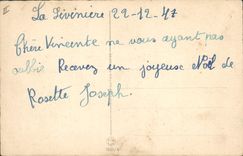 La Livinière 22-12-47
Chère Vincente ne vous ayant pas
oublié Recevez un joyeuse Noël de
Rosette Joseph.